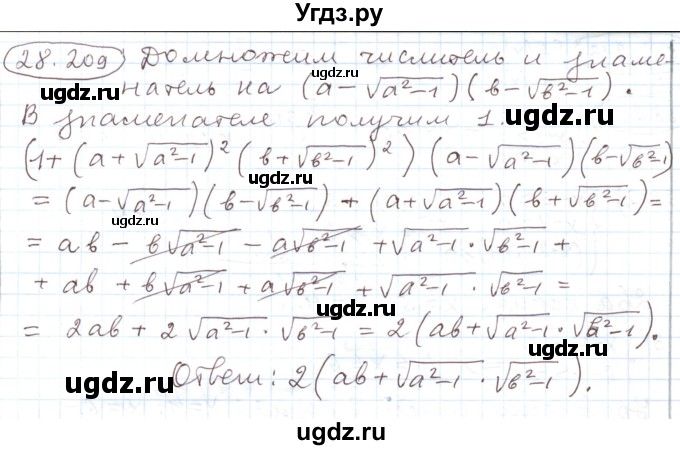 Угдз.ру
28.209 Домножим числитель и знаме-
натель на (a-√a²-1)(b-√b²-1).
gdz.ru
ugdz.ru
В знаменателе получим 1.
(1+(a+√a²-1)²(b+√b²-1)²)(a-√a²-1)(b-√b²-1)
ugdz.ru
= (a-√a²-1)(b-√b²-1)+(a+√a²-1)(b+√b²-1)=
ugdz.ru
= ab - b√a²-1 - a√b²-1 + √a²-1 · √b²-1 +
+ ab + b√a²-1 + a√b²-1 + √a²-1 · √b²-1 =
ugdz.ru
= 2ab + 2√a²-1 · √b²-1 = 2(ab+√a²-1 · √b²-1).
ugdz.ru
ugdz.ru
Ответ: 2(ab+√a²-1 · √b²-1).
ugdz.ru